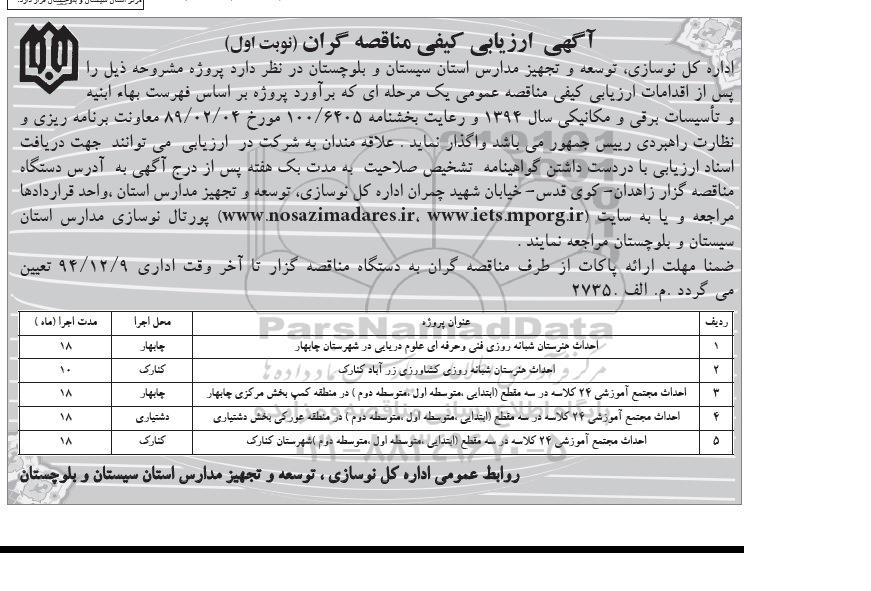 آگهی ارزیابی کیفی مناقصه گران (نوبت اول)
اداره کل نوسازی، توسعه و تجهیز مدارس استان سیستان و بلوچستان در نظر دارد پروژه مشروحه ذیل را
پس از اقدامات ارزیابی کیفی مناقصه عمومی یک مرحله ای که برآورد پروژه بر اساس فهرست بهاء ابنیه
و تأسیسات برقی و مکانیکی سال ۱۳۹۴ و رعایت بخشنامه ۱۰۰/۶۴۰۵ مورخ ۸۹/۰۲/۰۴ معاونت برنامه ریزی و
نظارت راهبردی رییس جمهور می باشد واگذار نماید . علاقه مندان به شرکت در ارزیابی می توانند جهت دریافت
اسناد ارزیابی با دردست داشتن گواهینامه تشخیص صلاحیت به مدت یک هفته پس از درج آگهی به آدرس دستگاه
مناقصه گزار زاهدان- کوی قدس- خیابان شهید چمران اداره کل نوسازی، توسعه و تجهیز مدارس استان ،واحد قراردادها
مراجعه و یا به سایت (www.nosazimadares.ir، www.iets.mporg.ir) پورتال نوسازی مدارس استان
سیستان و بلوچستان مراجعه نمایند .
ضمنا مهلت ارائه پاکات از طرف مناقصه گران به دستگاه مناقصه گزار تا آخر وقت اداری ۹۴/۱۲/۹ تعیین
می گردد .م. الف .۲۷۳۵
ردیف عنوان پروژه محل اجرا مدت اجرا (ماه )
۱ احداث هنرستان شبانه روزی فنی وحرفه ای علوم دریایی در شهرستان چابهار چابهار ۱۸
۲ احداث هنرستان شبانه روزی کشاورزی زر آباد کنارک کنارک ۱۰
۳ احداث مجتمع آموزشی ۲۴ کلاسه در سه مقطع (ابتدایی ،متوسطه اول ،متوسطه دوم ) در منطقه کمپ بخش مرکزی چابهار چابهار ۱۸
۴ احداث مجتمع آموزشی ۲۴ کلاسه در سه مقطع (ابتدایی ،متوسطه اول ،متوسطه دوم ) در منطقه عورکی بخش دشتیاری دشتیاری ۱۸
۵ احداث مجتمع آموزشی ۲۴ کلاسه در سه مقطع (ابتدایی ،متوسطه اول ،متوسطه دوم )شهرستان کنارک کنارک ۱۸
ParsNamadData
روابط عمومی اداره کل نوسازی ، توسعه و تجهیز مدارس استان سیستان و بلوچستان